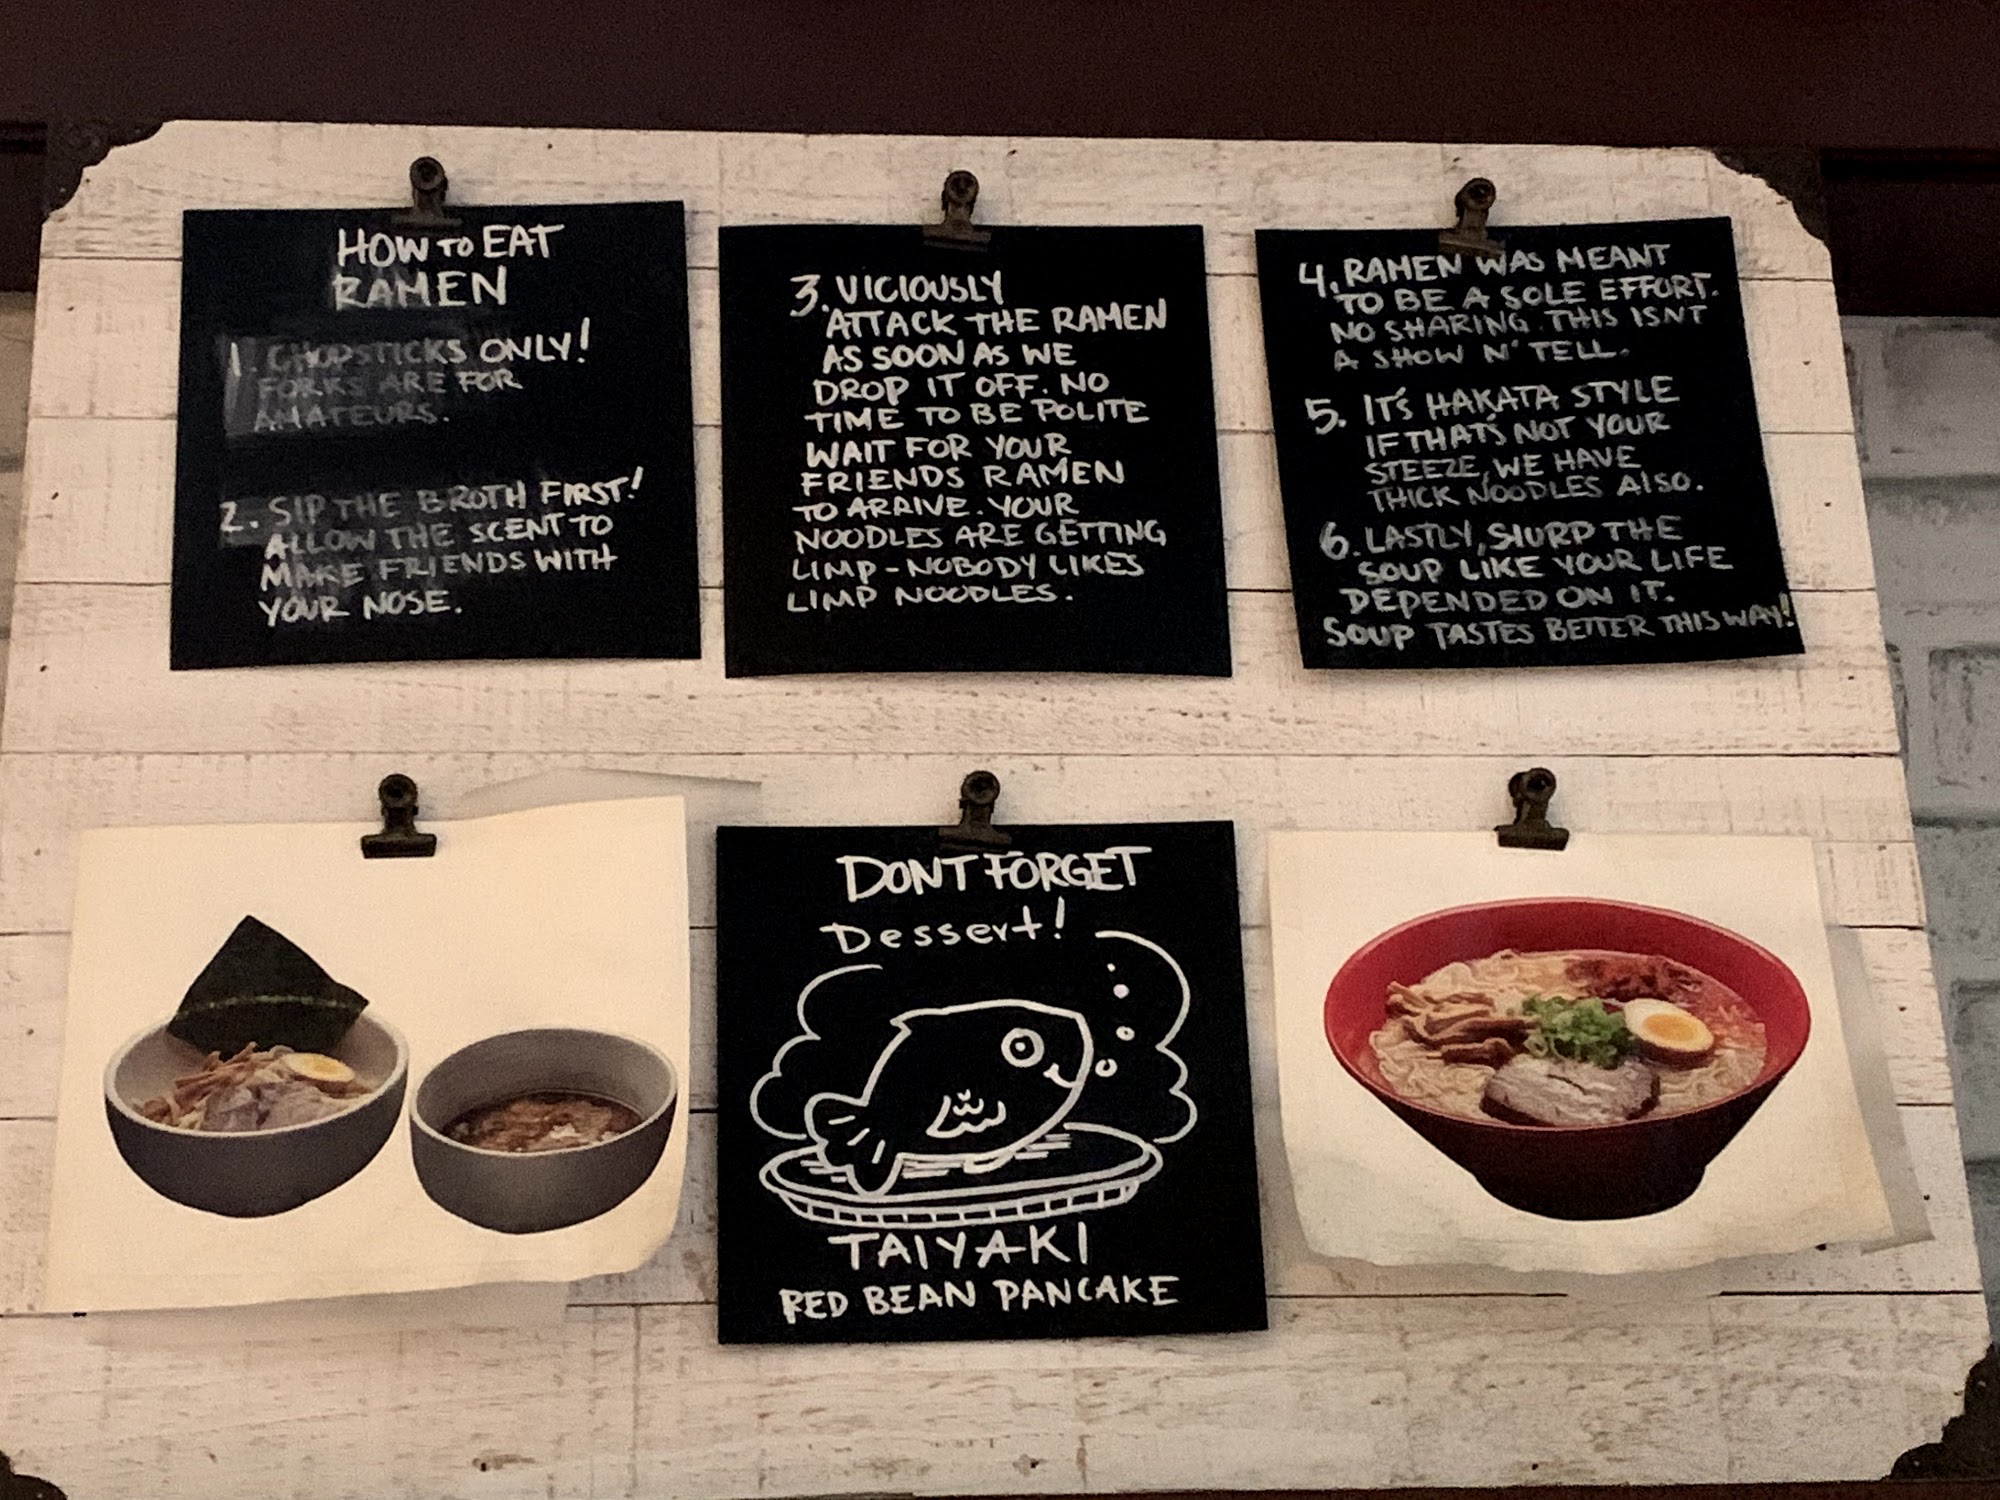 HOW TO EAT
RAMEN
1. CHOPSTICKS ONLY!
FORKS ARE FOR
AMATEURS.
2. SIP THE BROTH FIRST!
ALLOW THE SCENT TO
MAKE FRIENDS WITH
YOUR NOSE.
3. VICIOUSLY
ATTACK THE RAMEN
AS SOON AS WE
DROP IT OFF. NO
TIME TO BE POLITE
WAIT FOR YOUR
FRIENDS RAMEN
TO ARRIVE. YOUR
NOODLES ARE GETTING
LIMP-NOBODY LIKES
LIMP NOODLES.
4. RAMEN WAS MEANT
TO BE A SOLE EFFORT.
NO SHARING. THIS ISNT
A SHOW N' TELL.
5. IT'S HAKATA STYLE
IF THAT'S NOT YOUR
STEEZE, WE HAVE
THICK NOODLES ALSO.
6. LASTLY, SLURP THE
SOUP LIKE YOUR LIFE
DEPENDED ON IT.
SOUP TASTES BETTER THIS WAY!
DONT FORGET
Dessert!
TAIYAKI
RED BEAN PANCAKE